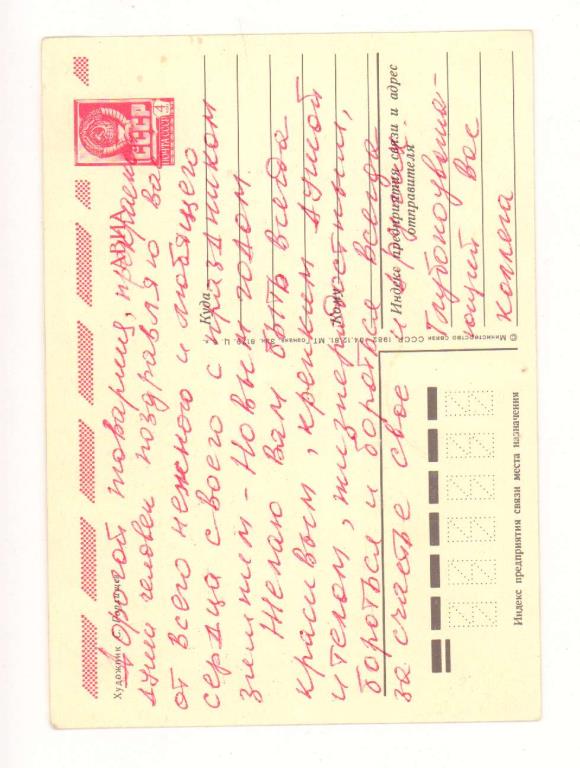 СССР
ПОЧТА СССР
4
АВИА
Художник С.
Куда
Кому
Индекс предприятия связи и адрес
отправителя
© Министерство связи СССР, 1982
МТ Гознака. Зак.
Индекс предприятия связи места назначения
Дорогой товарищ, прекрасной
души человек поздравляю вас
от всего нежного и любящего
сердца своего с праздником
зимним - Новым годом.
Желаю Вам быть всегда
красивым, крепким душой
и телом, жизнерадостным,
бороться и бороться всегда
за счастье свое и
Глубокоуважа-
ющий вас
коллега